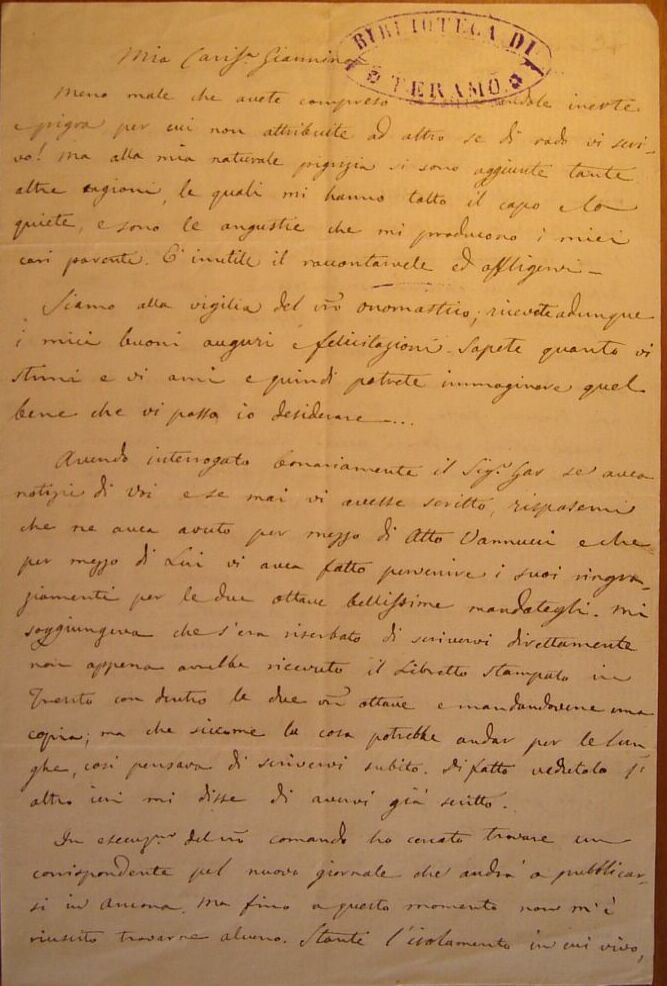 BIBLIOTECA DI
TERAMO
Mia Cariss.ª Giannina
Meno male che avete compreso indole inerte
e pigra per cui non attribuite ad altro se di rado vi scri-
vo! Ma alla mia naturale pigrizia si sono aggiunte tante
altre ragioni, le quali mi hanno tolto il capo e la
quiete, e sono le angustie che mi producono i miei
cari parenti. E' inutile il raccontarvele ed affligervi —
Siamo alla vigilia del vrõ onomastico; ricevete adunque
i miei buoni auguri e felicitazioni. Sapete quanto vi
stimi e vi ami e quindi potrete immaginare quel
bene che vi possa io desiderare — ...
Avendo interrogato bonariamente il Sig.r Gar se avea
notizie di Voi e se mai vi avesse scritto, risposemi
che ne avea avuto per mezzo di Atto Vannucci e che
per mezzo di Lui vi avea fatto pervenire i suoi ringra-
ziamenti per le due ottave bellissime mandategli. Mi
soggiungeva che s'era riserbato di scrivervi direttamente
non appena avrebbe ricevuto il Libretto stampato in
Trento con dentro le due vrẽ ottave e mandandovene una
copia; ma che siccome la cosa potrebbe andar per le lun-
ghe, così pensava di scrivervi subito. Di fatto vedutolo l'
altro ieri mi disse di avervi già scritto.
In esecuz.ne del vrõ comando ho cercato trovare un
corrispondente pel nuovo giornale che andrà a pubblicar-
si in Ancona. Ma fino a questo momento non m'è
riuscito trovarne alcuno. Stante l'isolamento in cui vivo,